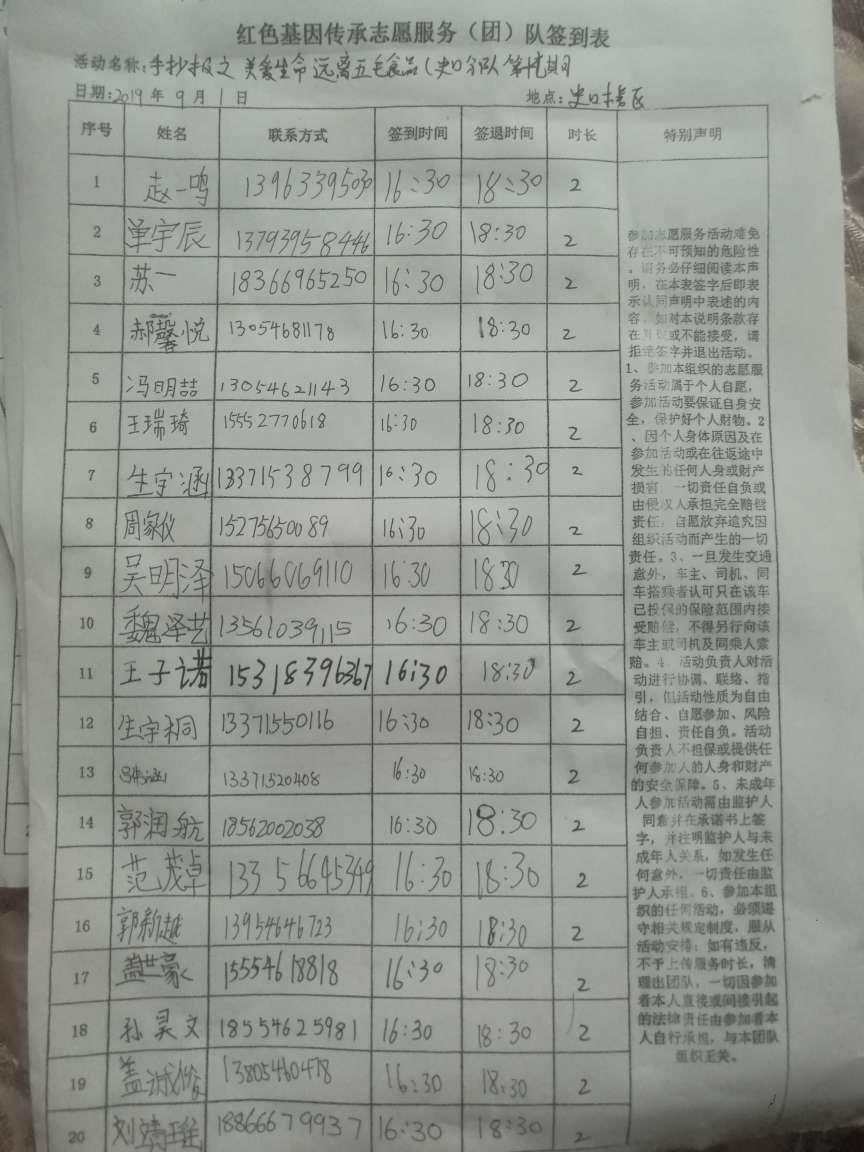 红色基因传承志愿服务（团）队签到表
活动名称：手抄报之 关爱生命 远离五毛食品（史口分队 第 期
日期：2019 年 9 月 1 日 地点：史口 区
序号 姓名 联系方式 签到时间 签退时间 时长 特别声明
1 赵一鸣 13963395030 16:30 18:30 2
2 单宇辰 13793958446 16:30 18:30 2
3 苏一 18366965250 16:30 18:30 2
4 郝馨悦 13054681178 16:30 18:30 2
5 冯明喆 13054621143 16:30 18:30 2
6 王瑞琦 15552770618 16:30 18:30 2
7 生宇涵 13371538799 16:30 18:30 2
8 周家仪 15275650089 16:30 18:30 2
9 吴明泽 15066069110 16:30 18:30 2
10 魏泽艺 13561039115 16:30 18:30 2
11 王子诺 15318396367 16:30 18:30 2
12 生宇桐 13371550116 16:30 18:30 2
13 13371520408 16:30 18:30 2
14 郭润航 18562002038 16:30 18:30 2
15 范茂卓 13356645349 16:30 18:30 2
16 郭新越 13954646723 16:30 18:30 2
17 盖世豪 15554618818 16:30 18:30 2
18 孙昊文 18554625981 16:30 18:30 2
19 盖 13805460478 16:30 18:30 2
20 刘靖 18866679937 16:30 18:30 2
参加志愿服务活动难免
存在不可预知的危险性
。请务必仔细阅读本声
明，在本表签字后即表
示认同声明中表述的内
容，如对本说明条款存
在异议或不能接受，请
拒绝签字并退出活动。
1、参加本组织的志愿服
务活动属于个人自愿，
参加活动要保证自身安
全，保护好个人财物。2
、因个人身体原因及在
参加活动或在往返途中
发生的任何人身或财产
损害，一切责任自负或
由侵权人承担完全赔偿
责任，自愿放弃追究因
组织活动而产生的一切
责任。3、一旦发生交通
意外，车主、司机、同
车搭乘者认可只在该车
已投保的保险范围内接
受赔偿，不得另行向该
车主或司机及同乘人索
赔。4、活动负责人对活
动进行协调、联络、指
引，但活动性质为自由
结合、自愿参加、风险
自担、责任自负。活动
负责人不担保或提供任
何参加人的人身和财产
的安全保障。5、未成年
人参加活动需由监护人
同意并在承诺书上签
字，并注明监护人与未
成年人关系，如发生任
何意外，一切责任由监
护人承担。6、参加本组
织的任何活动，必须遵
守相关规定制度，服从
活动安排；如有违反，
不予上传服务时长，清
理出团队，一切因参加
者本人直接或间接引起
的法律责任由参加者本
人自行承担，与本团队
组织无关。